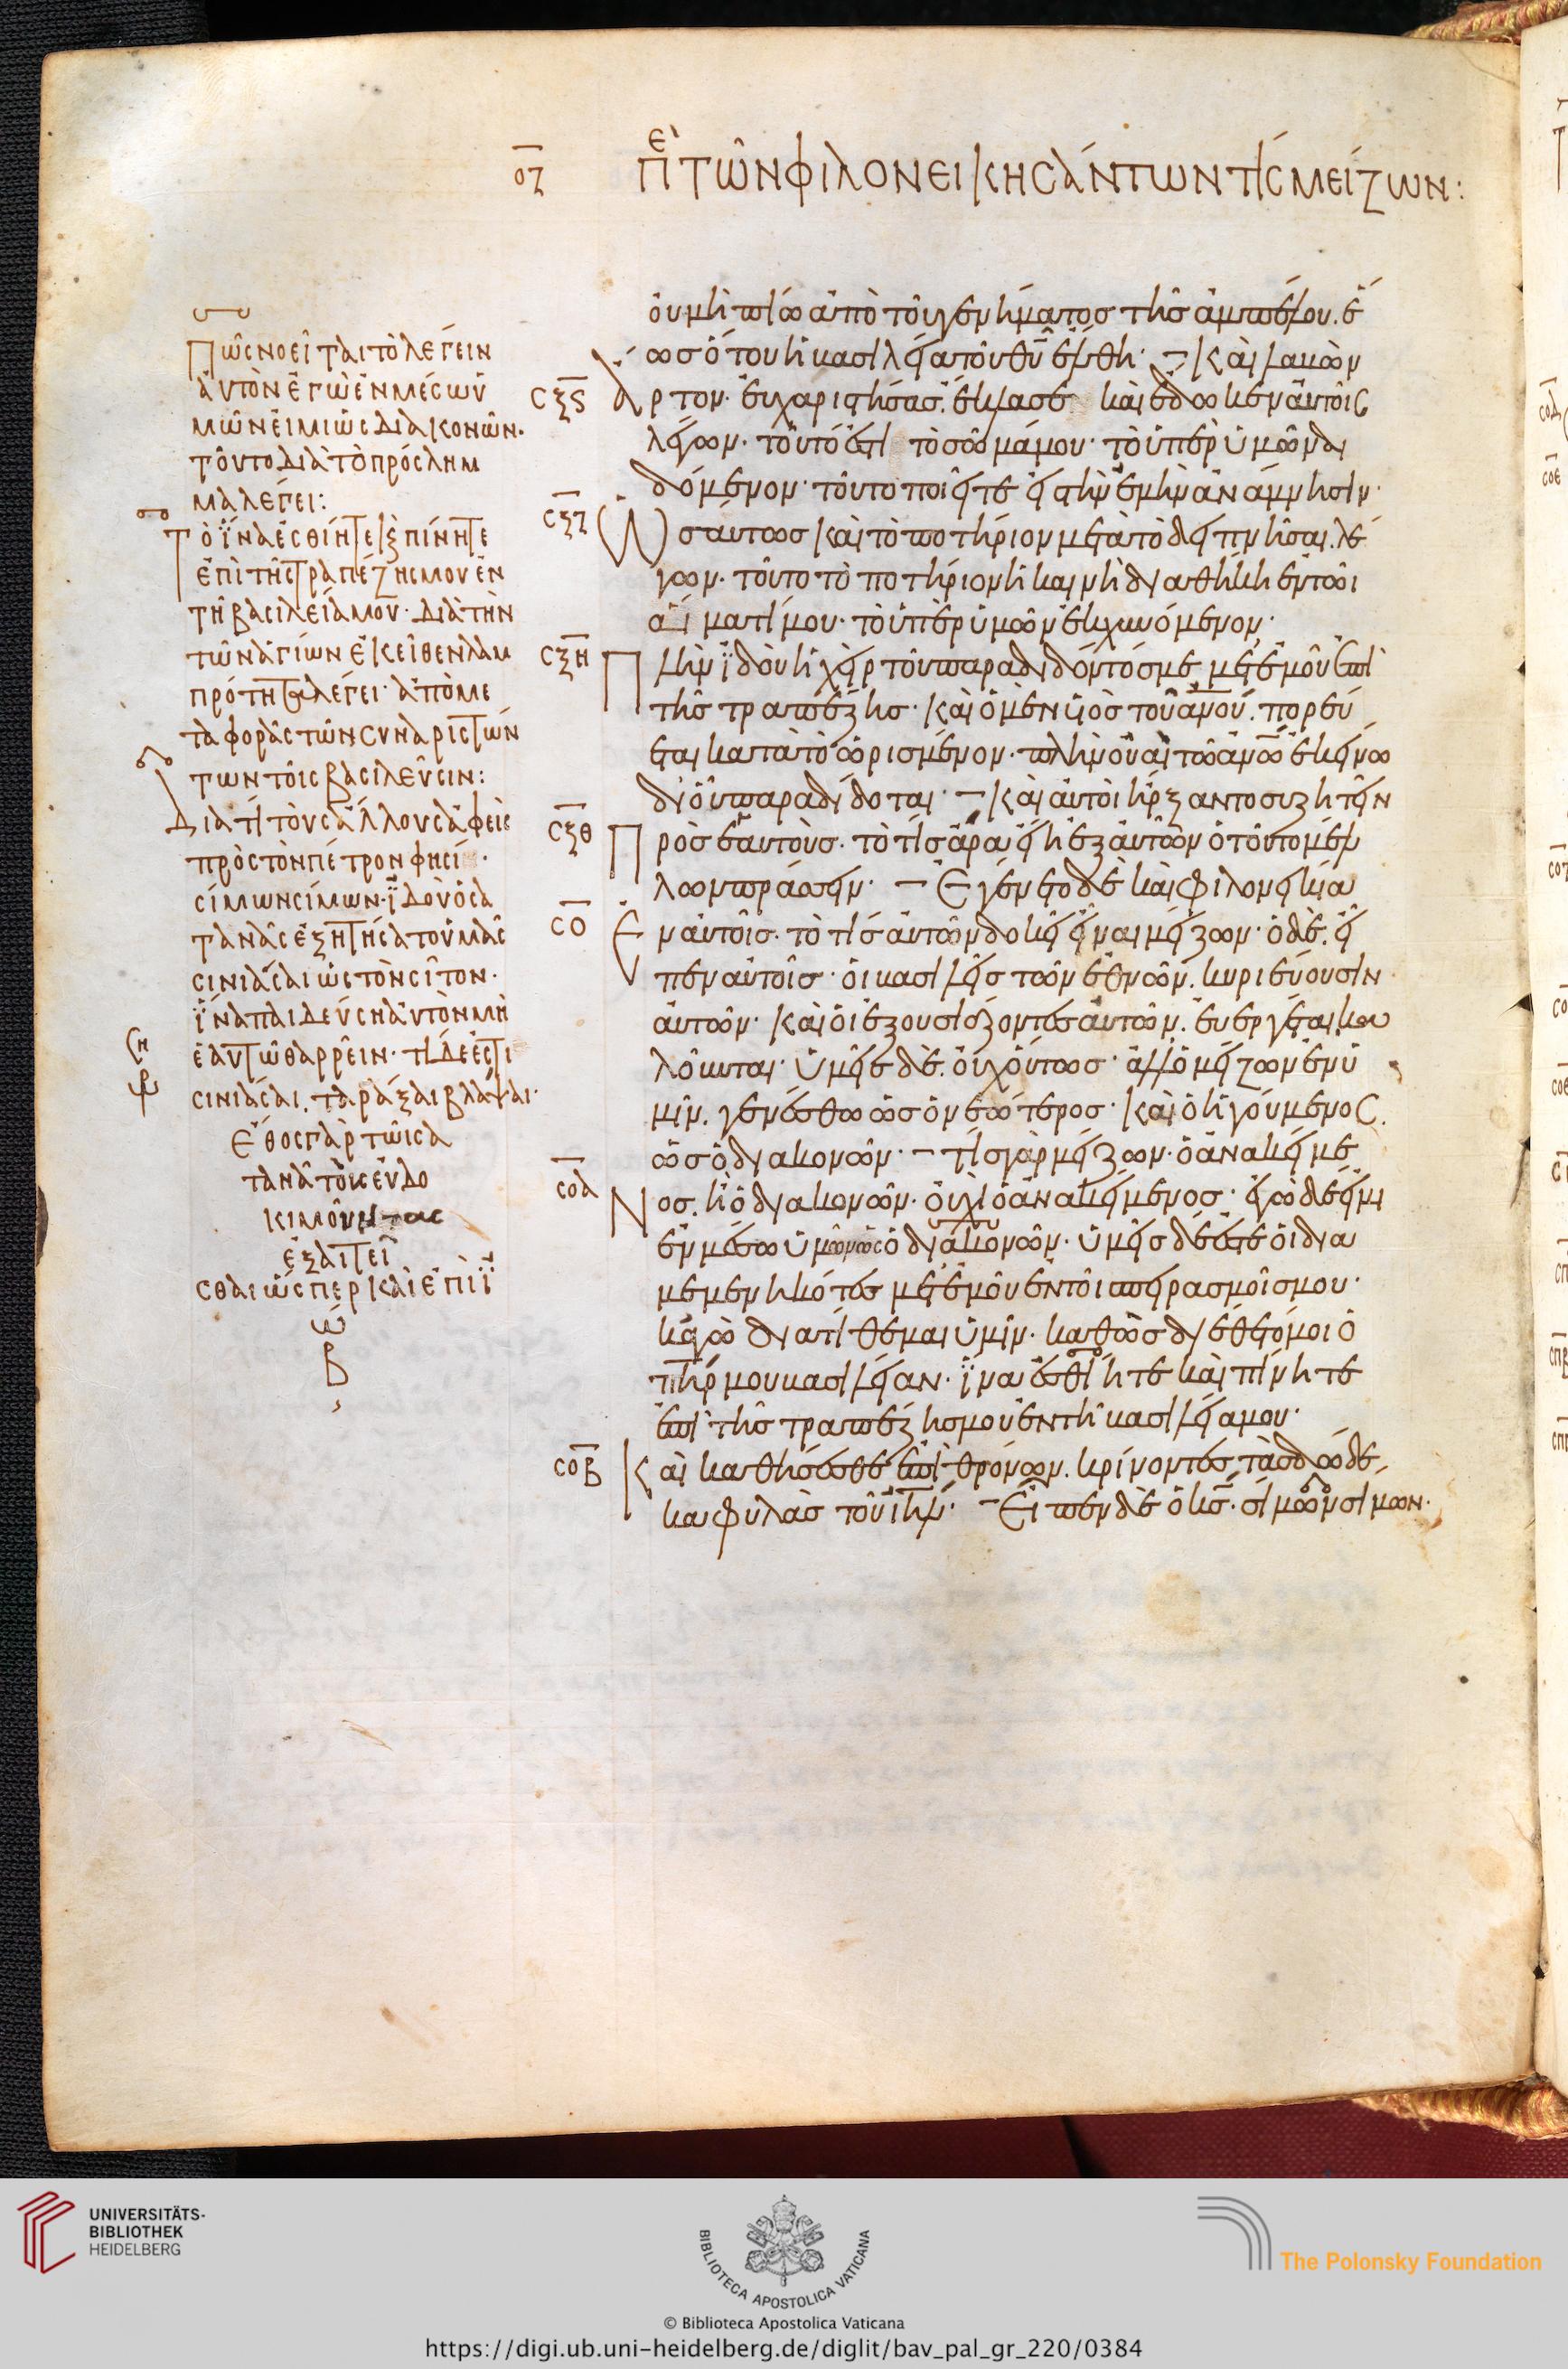 ος
περὶ τῶν φιλονεικησάντων τίς μείζων:
οὐ μὴ πίω ἀπὸ τοῦ γενήματος τῆς ἀμπέλου. ἕ
ως ὅτου ἡ βασιλεία τοῦ θῦ ἔλθη· καὶ λαβὼν
σξϛ ἄρτον· εὐχαριστήσας. ἔκλασε καὶ ἔδωκεν αὐτοῖς
λέγων· τοῦτό ἐστι τὸ σῶμά μου· τὸ ὑπὲρ ὑμῶν δι
δόμενον· τοῦτο ποιεῖτε εἰς τὴν ἐμὴν ἀνάμνησιν·
σξζ Ὡσαύτως καὶ τὸ ποτήριον μετὰ τὸ δειπνῆσαι. λέ
γων· τοῦτο τὸ ποτήριον ἡ καινὴ διαθήκη ἐν τῶι
αἵματί μου· τὸ ὑπὲρ ὑμῶν ἐκχυνόμενον·
σξη Πλὴν ἰδοὺ ἡ χεὶρ τοῦ παραδιδόντός με μετ' ἐμοῦ ἐπὶ
τῆς τραπέζης· καὶ ὁ μὲν υἱὸς τοῦ ανου. πορεύ
εται κατὰ τὸ ὡρισμένον· πλὴν οὐαὶ τῶ ανω ἐκείνω
δι' οὗ παραδίδοται· καὶ αὐτοὶ ἤρξαντο συζητεῖν
σξθ Πρὸς ἑαυτοὺς. τὸ τίς ἄρα εἴη ἐξ αὐτῶν ὁ τοῦτο μέλ
λων πράσσειν· Ἐγένετο δὲ καὶ φιλονεικία
σο Ἐν αὐτοῖς. τὸ τίς αὐτῶν δοκεῖ εἶναι μείζων· ὁ δὲ. εἶ
πεν αὐτοῖς· οἱ βασιλεῖς τῶν ἐθνῶν. κυριεύουσιν
αὐτῶν· καὶ οἱ ἐξουσιάζοντες αὐτῶν. εὐεργέται κα
λοῦνται· ὑμεῖς δὲ. οὐχ οὕτως· ἀλλ' ὁ μείζων ἐν ὑ
μῖν. γενέσθω ὡς ὁ νεώτερος· καὶ ὁ ἡγούμενος.
ὡς ὁ διακονῶν· τίς γὰρ μείζων· ὁ ἀνακείμε
σοα Νος. ἢ ὁ διακονῶν· οὐχὶ ὁ ἀνακείμενος· ἐγὼ δέ εἰμι
ἐν μέσω ὑμῶν ὡς ὁ διακονῶν· ὑμεῖς δέ ἐστε οἱ δια
μεμενηκότες μετ' ἐμοῦ ἐν τοῖς πειρασμοῖς μου·
κἀγὼ διατίθεμαι ὑμῖν· καθὼς διέθετό μοι ὁ
πηρ μου βασιλείαν· ἵνα ἐσθίητε καὶ πίνητε
ἐπὶ τῆς τραπέζης μου ἐν τῆ βασιλεία μου·
σοβ Καὶ καθήσεσθε ἐπὶ θρόνων. κρίνοντες τὰς δώδε
κα φυλὰς τοῦ ιηλ· Εἶπεν δὲ ὁ κς. σίμων σίμων·
Πῶς νοεῖται τὸ λέγειν
αὐτὸν ἐγὼ ἐν μέσω ὑ
μῶν εἰμι ὡς διακονῶν·
τοῦτο διὰ τὸ πρόσλημ
μα λέγει:
Τὸ ἵνα ἐσθίητε κ πίνητε
ἐπὶ τῆς τραπέζης μου ἐν
τῆ βασιλεία μου· διὰ τὴν
τῶν ἁγίων ἐκεῖθεν λαμ
πρότητα λέγει· ἀπὸ με
ταφορᾶς τῶν συναριστών
των τοῖς βασιλεῦσιν:
Διατί τοὺς ἄλλους ἀφεὶς
πρὸς τὸν πέτρον φησί·
σίμων σίμων· ἰδοὺ ὁ σα
τανᾶς ἐξητήσατο ὑμᾶς
σινιάσαι ὡς τὸν σῖτον·
ἵνα παιδεύση αὐτὸν μὴ
ἑαυτῶ θαρρεῖν· τί δέ ἐστι
σινιάσαι. ταράξαι βλάψαι·
Ἔθος γὰρ τῶι σα
τανᾶ τοὺς εὐδο
κιμοῦντας
ἐξαιτεῖ
σθαι ὥσπερ καὶ ἐπὶ ἰ
ώ
β
UNIVERSITÄTS-
BIBLIOTHEK
HEIDELBERG
BIBLIOTECA APOSTOLICA VATICANA
The Polonsky Foundation
© Biblioteca Apostolica Vaticana
https://digi.ub.uni-heidelberg.de/diglit/bav_pal_gr_220/0384